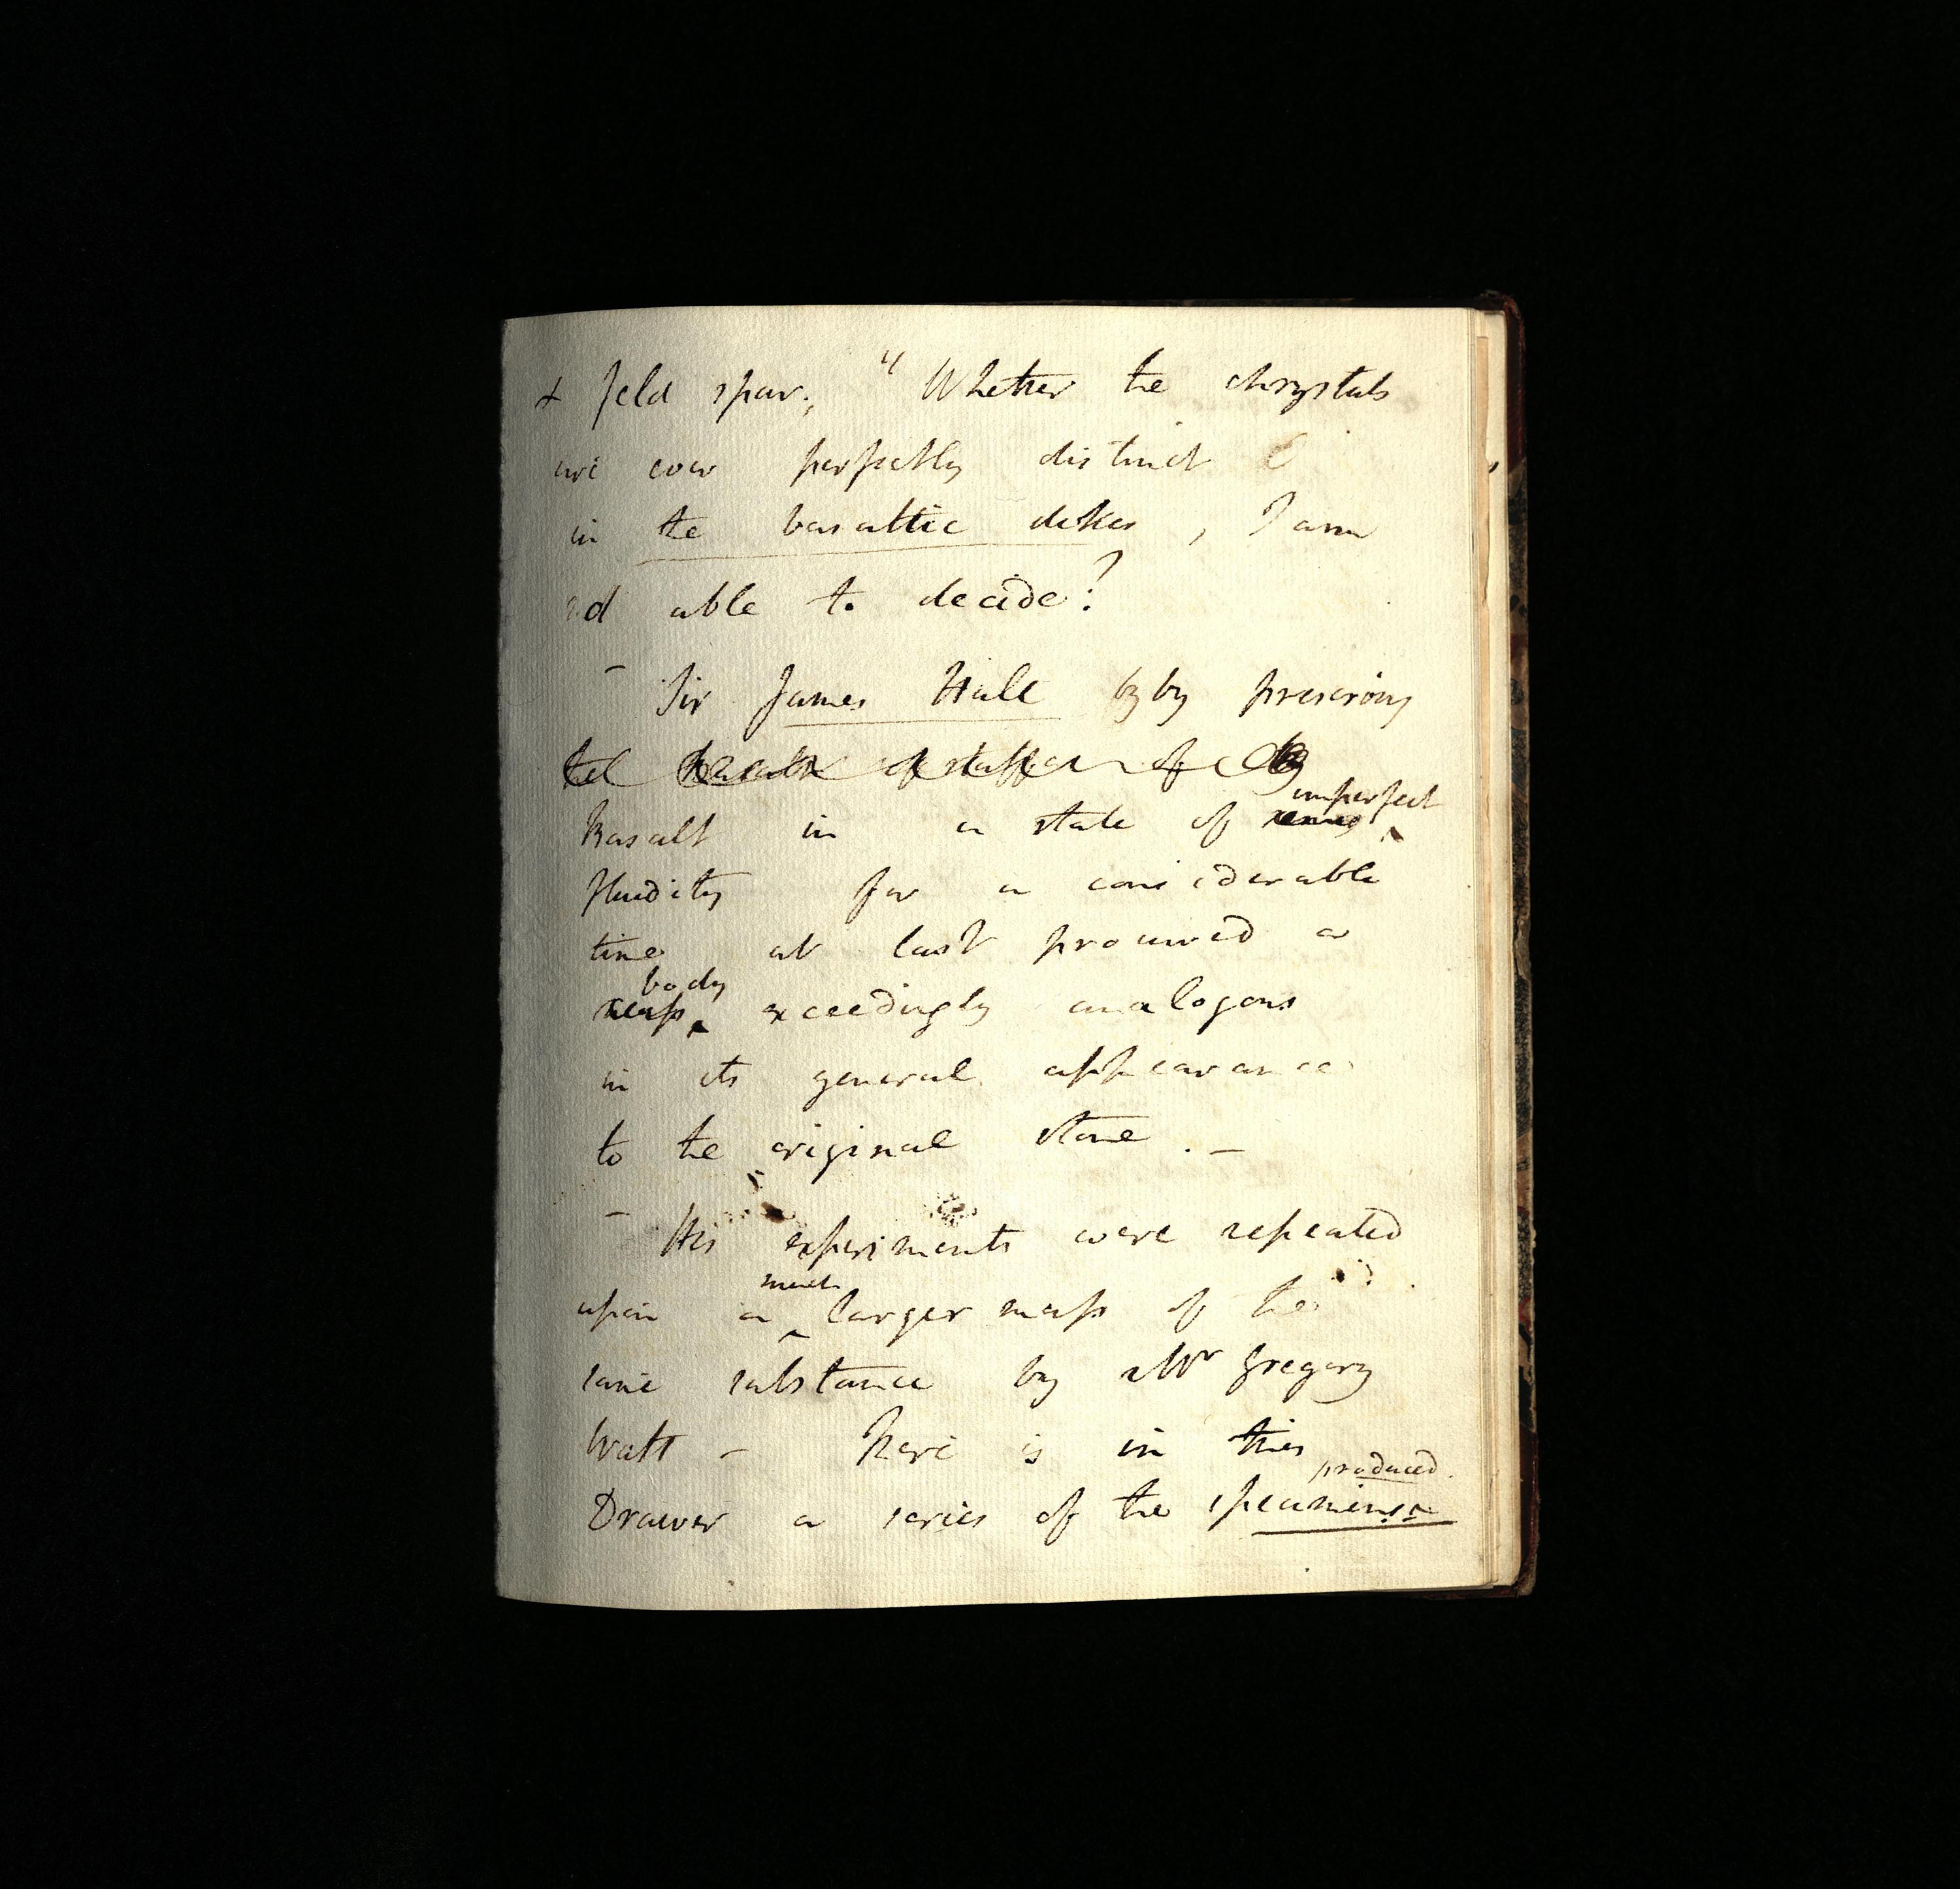 & feld spar; " Whether the chrystals
are ever perfectly distinct
in the basaltic dikes, I am
not able to decide?
– Sir James Hall by by preserving
the basalt of staffa of
imperfect
Basalt in a state of
fluidity for a considerable
time at last procured a
body
mass exceedingly analogous
in its general appearance
to the original stone. –
– His experiments were repeated
much
upon a ^ larger mass of the
same substance by Mr Gregory
Watt – Here is in this
produced.
Drawer a series of the specimens